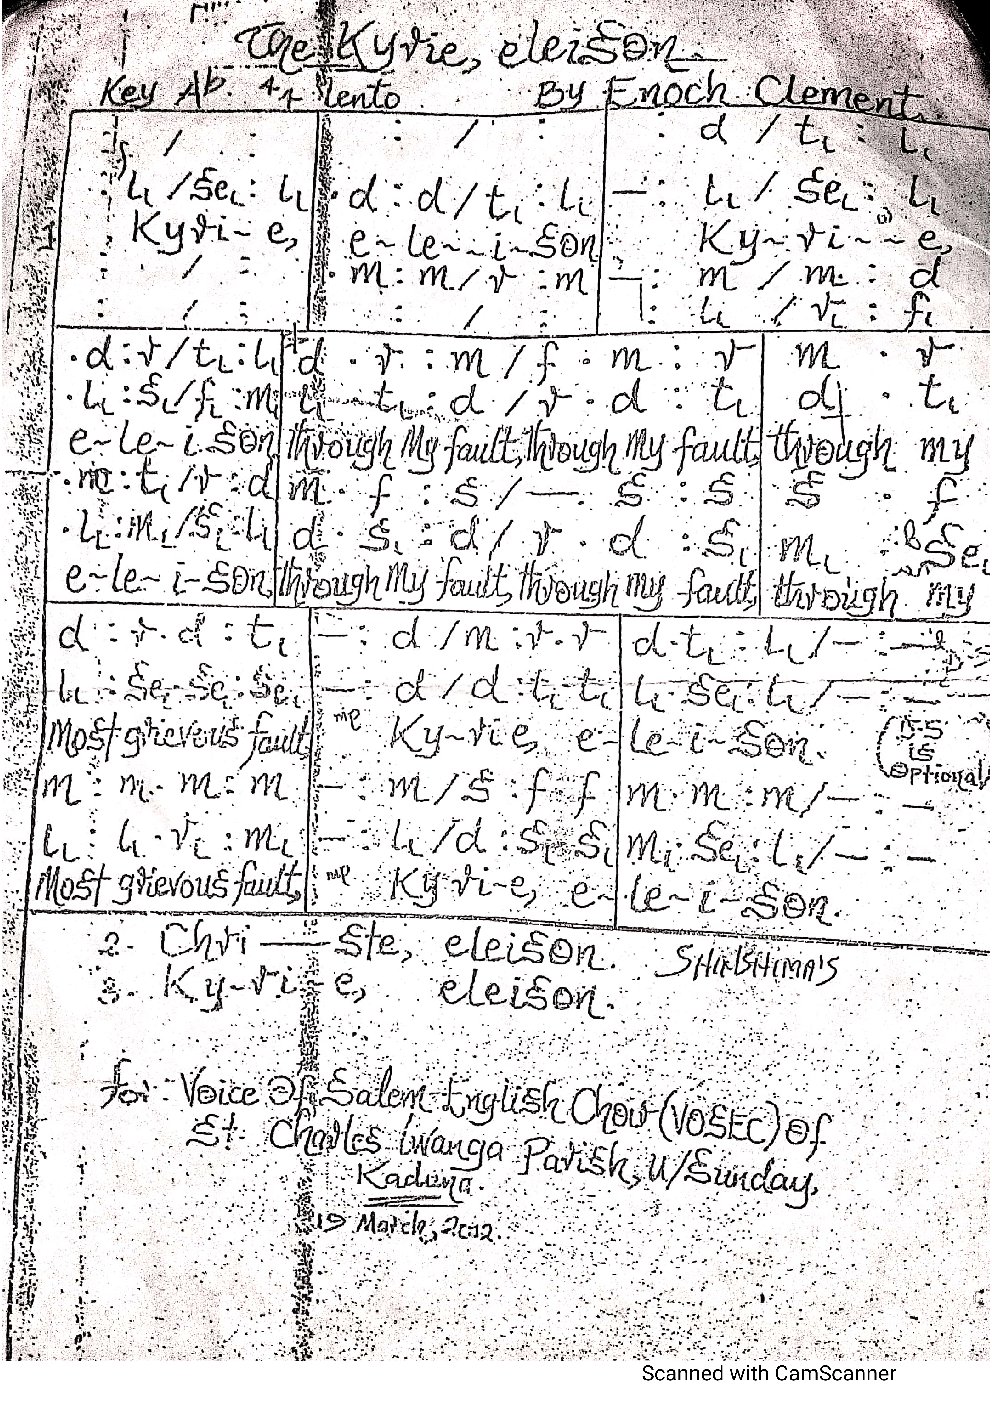 The Kyrie, eleison
Key Ab. 4/4 lento By Enoch Clement.
: / : : / : : d / t₁ : l₁
l₁ / se₁ : l₁ . d : d / t₁ : l₁ — : l₁ / se₁ : l₁
Kyri~e, e~le~i~son Ky~ri~~e,
: / : . m : m / r : m — : m / m : d
: / : : / : : l₁ / r₁ : f₁
. d : r / t₁ : l₁ d . r : m / f . m : r m . r
. l₁ : s₁ / f₁ : m₁ l₁ . t₁ : d / r . d : t₁ d . t₁
e~le~i.son through My fault, through My fault, through my
. m : t₁ / r : d m . f : s / — . s : s s . f
. l₁ : m₁ / s₁ : l₁ d . s₁ : d / r . d : s₁ m₁ : se₁
e~le~i~son, through My fault, through my fault, through my
d : r . d : t₁ — : d / m : r . r d . t₁ : l₁ / — : —
l₁ : se₁ . se₁ : se₁ — : d / d : t₁ . t₁ l₁ . se₁ : l₁ / — : —
Most grievous fault, mp Ky~rie, e~le~i~son. (D.S is optional
m : m . m : m — : m / s : f . f m . m : m / — : —
l₁ : l₁ . r₁ : m₁ — : l₁ / d : s₁ . s₁ m₁ . se₁ : l₁ / — : —
Most grievous fault, mp Kyri~e, e~le~i~son.
2. Chri — ste, eleison. SHIMSHIMA'S
3. Ky~ri~e, eleison.
for: Voice Of Salem English Choir (VOSEC) Of
St. Charles Lwanga Parish, U/Sunday,
Kaduna.
19 March, 2012.
Scanned with CamScanner